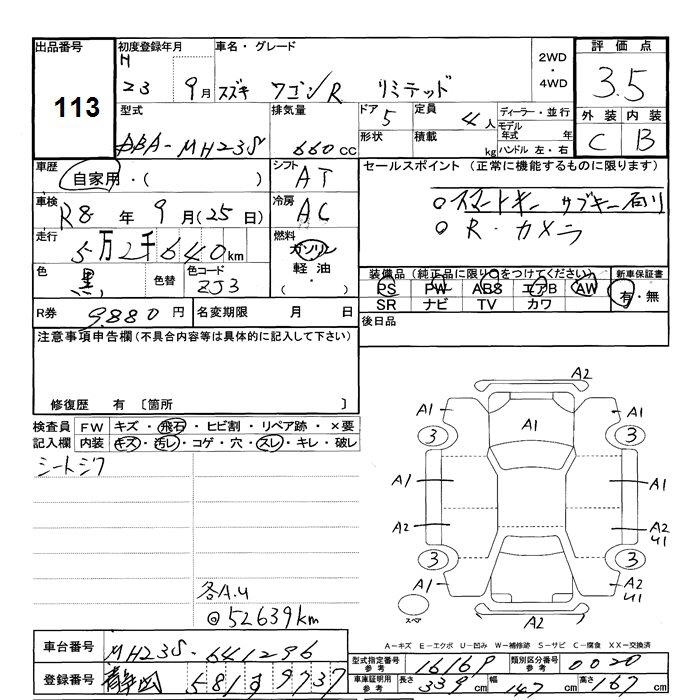 出品番号 初度登録年月 車名・グレード 2WD・4WD 評価点
113
H23 9月 スズキ ワゴンR リミテッド 3.5
型式 排気量 ドア 5 定員 4人 ディーラー・並行 外装 内装
DBA-MH23S 660cc 形状 積載 kg モデル年式 年 ハンドル 左・右 C B
車歴 自家用・( ) シフト AT セールスポイント(正常に機能するものに限ります)
車検 R8年 9月(25日) 冷房 AC ○スマートキー サブキー有り
走行 5万2千640km 燃料 ガソリン 軽油 ・( ) ○R.カメラ
色 黒 色替 色コード ZJ3 装備品(純正品に限り○をつけてください) 新車保証書
PS PW ABS エアB AW 有・無
SR ナビ TV カワ
R券 9,880円 名変期限 月 日 後日品
注意事項申告欄(不具合内容等は具体的に記入して下さい)
修復歴 有 〔箇所 〕
検査員 FW キズ・飛石・ヒビ割・リペア跡・×要
記入欄 内装 キズ・汚レ・コゲ・穴・スレ・キレ・破レ
シートシワ
A2
A1 A1 A1
3 3
A1 A1
A2 A2 U1
3 3
A1 A2 U1
スペア A2
各A.U
@52639km
A-キズ E-エクボ U-凹み W-補修跡 S-サビ C-腐食 XX-交換済
車台番号 MH23S-641296 型式指定番号 参考 16169 類別区分番号 参考 0020
登録番号 静岡 581 す 9737 車庫証明用 参考 長さ 339cm 幅 147cm 高さ 167cm